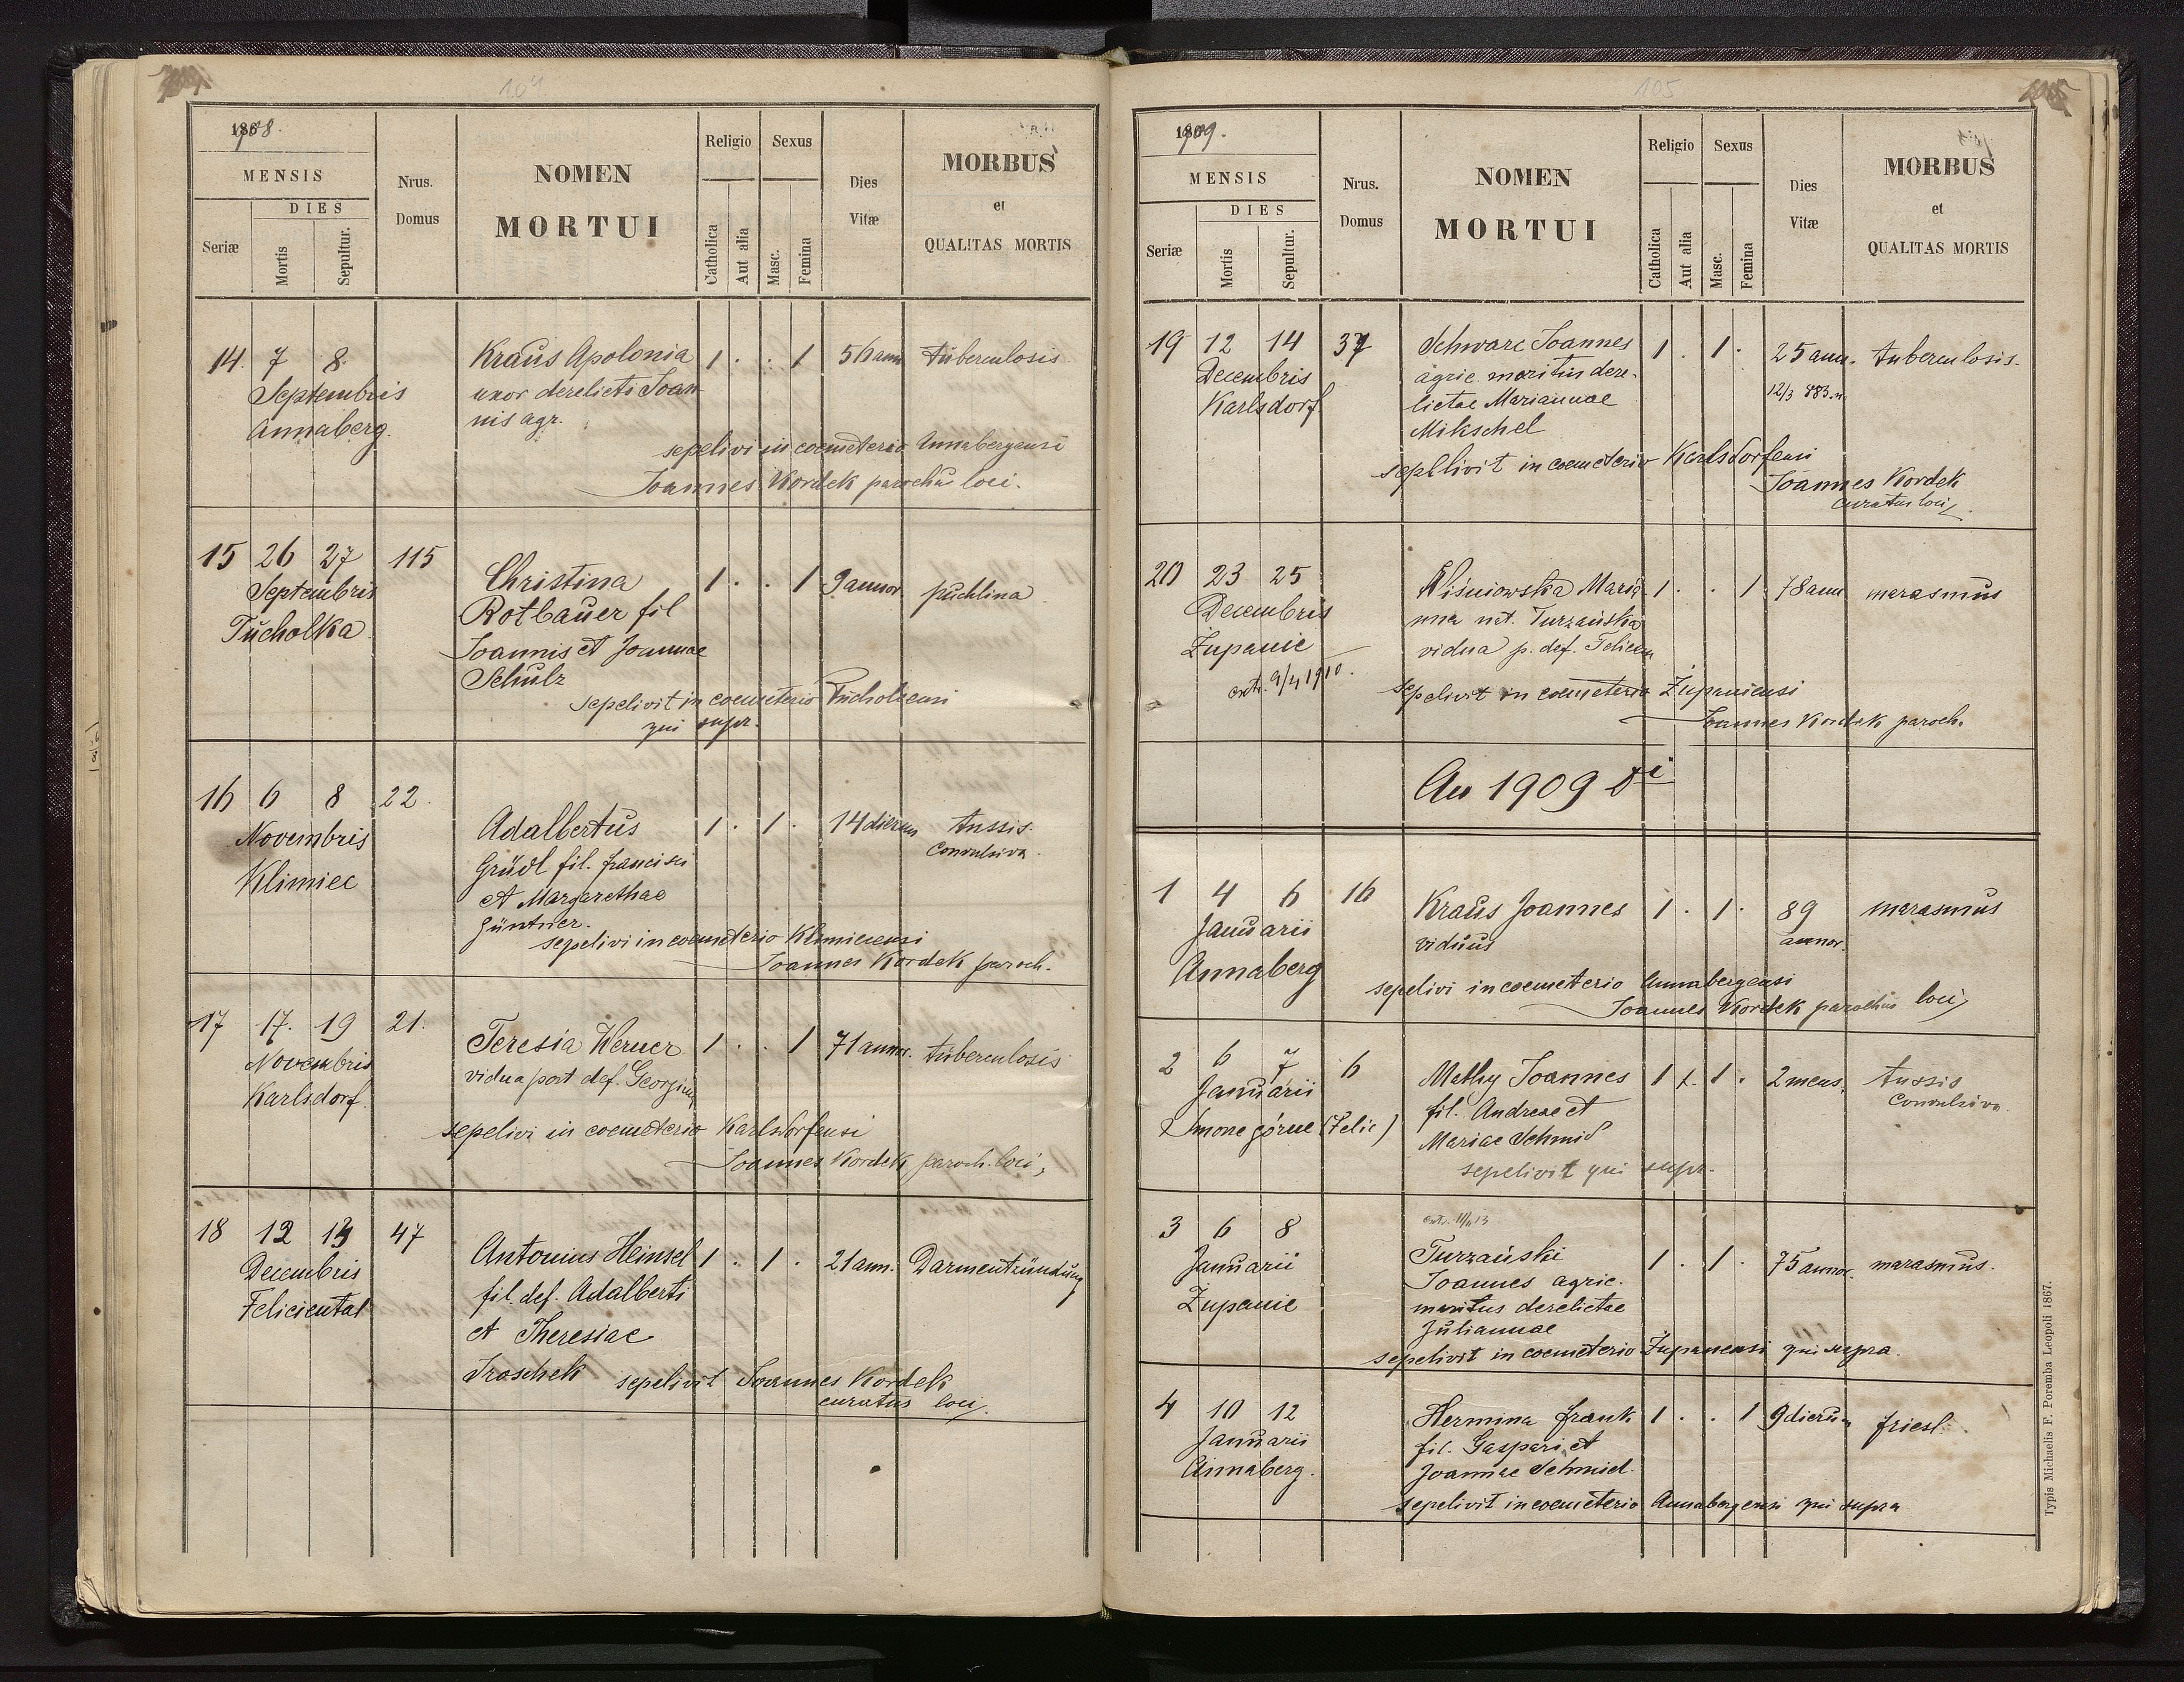 104
1908.
MENSIS
DIES
Seriæ
Mortis
Sepultur.
Nrus.
Domus
NOMEN
MORTUI
Religio
Catholica
Aut alia
Sexus
Masc.
Femina
Dies
Vitæ
MORBUS
et
QUALITAS MORTIS
14. 7 8. Kraus Apolonia 1 . . 1 56 ann tuberculosis
Septembris uxor derelicti Joan
Annaberg. nis agr.
sepelivi in coemeterio Annabergensi
Joannes Kordek parochus loci.
15 26 27 115 Christina 1 . . 1 9 annor. puchlina
Septembris Rotbauer fil
Tucholka Joannis et Joannae
Schulz
sepelivit in coemeterio Tucholcensi
qui supr.
16 6 8 22. Adalbertus 1 . 1 . 14 dierum tussis
Novembris Gründl fil. Francisci convulsiva.
Klimiec et Margarethae
Güntner.
sepelivi in coemeterio Klimiecensi
Joannes Kordek paroch.
17 17. 19 21. Teresia Werner 1 . . 1 71 annor. tuberculosis
Novembris vidua post def. Georgium
Karlsdorf
sepelivi in coemeterio Karlsdorfensi
Joannes Kordek paroch. loci,
18 12 13 47 Antonius Heinsel 1 . 1 . 21 ann. Darmentzündung
Decembris fil. def. Adalberti
Feliciental et Theresiae
Troschek sepelivit Joannes Kordek
curatus loci,
105
1909.
MENSIS
DIES
Seriæ
Mortis
Sepultur.
Nrus.
Domus
NOMEN
MORTUI
Religio
Catholica
Aut alia
Sexus
Masc.
Femina
Dies
Vitæ
MORBUS
et
QUALITAS MORTIS
19 12 14 37 Schwarc Joannes 1 . 1 . 25 ann. tuberculosis.
Decembris agric. maritus dere- 12/3 883.n.
Karlsdorf lictae Mariannae
Mikschel
sepllivit in coemeterio Karlsdorfensi
Joannes Kordek
curatus loci,
20 23 25 Wiśniowska Maria 1 . . 1 78 ann marasmus
Decembris nna nat. Turzańska
Żupanie vidua p. def. Felicem
extr. 9/4 1910.
sepelivit in coemeterio Żupaniensi
Joannes Kordek paroch.
Ao 1909
1 4 6 16 Kraus Joannes 1 . 1 . 89 marasmus
Januarii viduus annor.
Annaberg
sepelivi in coemeterio Annabergensi
Joannes Kordek parochus loci,
2 6 7 6 Mathy Joannes 1 . 1 . 2 mens. tussis
Januarii fil. Andreae et convulsiva.
Smorze górne (Felic) Mariae Schmid
sepelivit qui supr.
3 6 8 Turzański 1 . 1 . 75 annor. marasmus.
Januarii Joannes agric.
Żupanie maritus derelictae
Juliannae
sepelivit in coemeterio Żupanensi qui supra.
4 10 12 Hermina Frank 1 . . 1 9 dierum friesl.
Januarii fil. Gaspari et
Annaberg. Joannae Schmid.
sepelivit in coemeterio Annabergensi qui supra
Typis Michaelis F. Poremba Leopoli 1867.